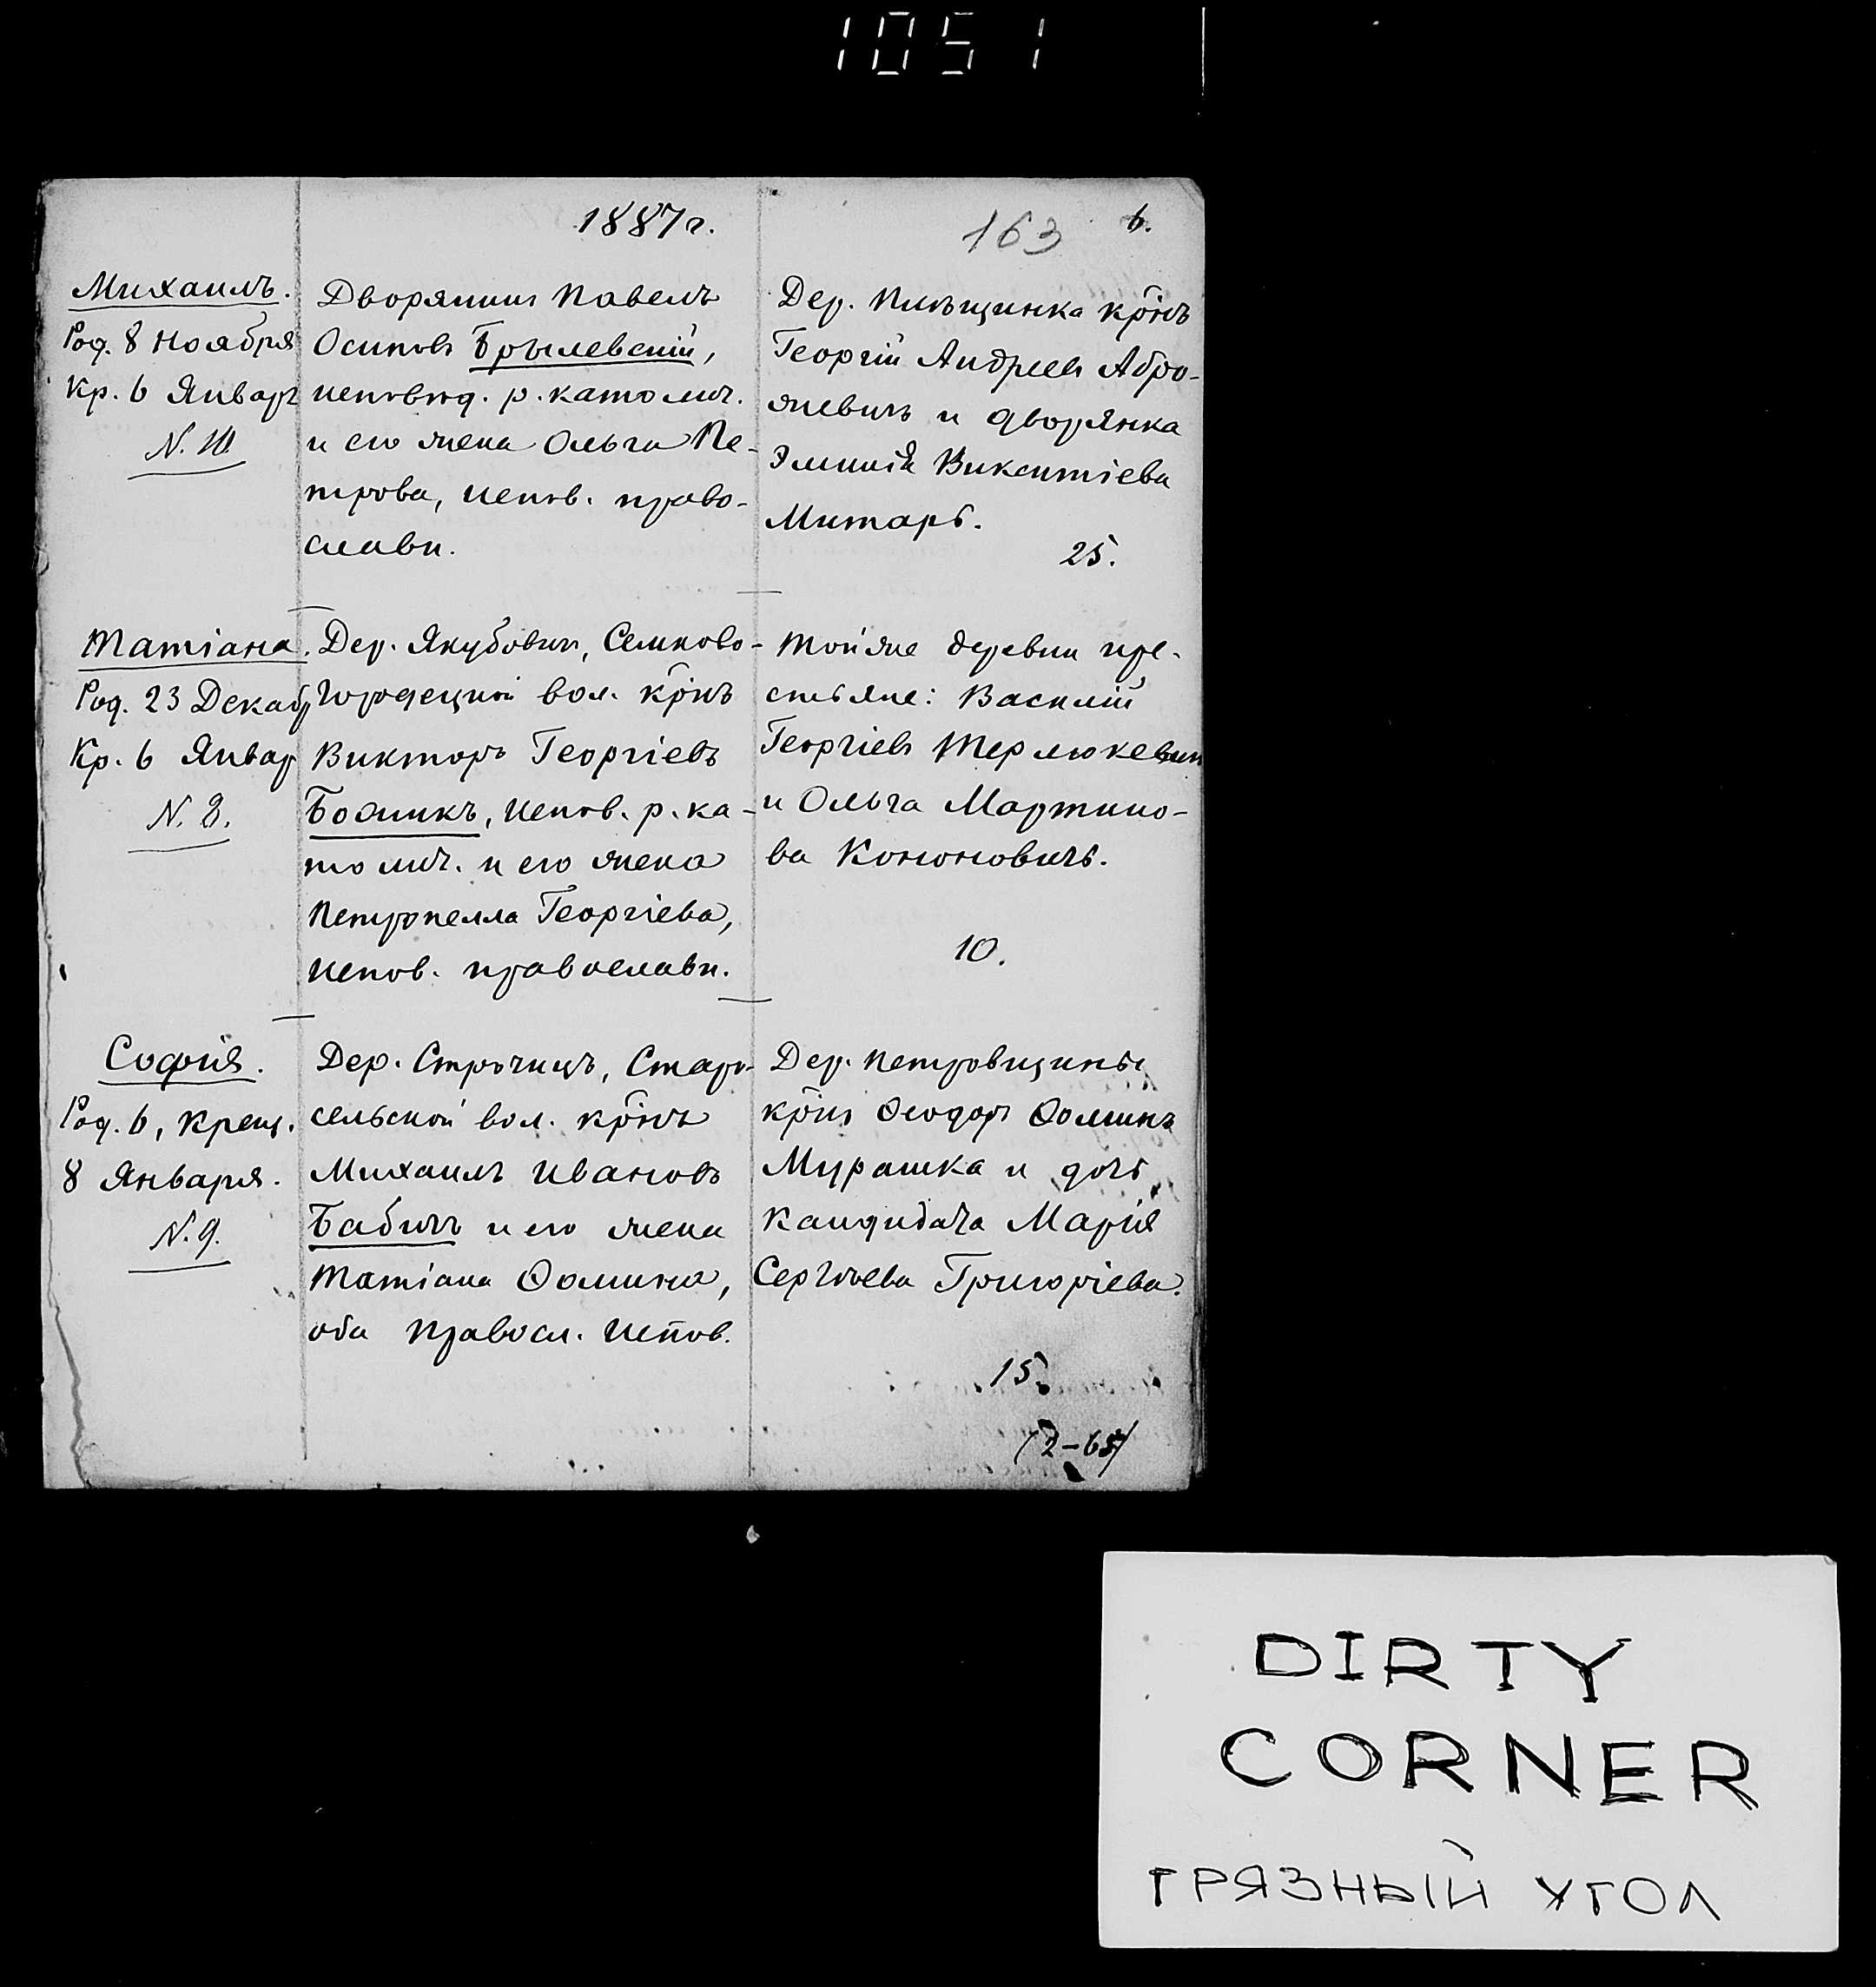 1051
1887 г.
163
6.
Михаилъ.
Род. 8 Ноября
Кр. 6 Январ
N.
Дворянинъ Павелъ
Осиповъ Брылевскій,
исповѣд. р. католич.
и его жена Ольга Пе-
трова, испов. право-
славн.
Дер. крн̃ъ
Георгій Андреевъ Абро-
жевичъ и дворянка
Эмилія Викентіева
Митаръ.
25.
Татіана.
Род. 23 Декабр
Кр. 6 Январ
N. 8.
Дер. Якубовичъ, Семково-
городецкой вол. крн̃ъ
Викторъ Георгіевъ
испов. р. ка-
толич. и его жена
Петронелла Георгіева,
испов. православн.
Той же деревни кре-
стьяне: Василій
Георгіевъ Терлюкевич
и Ольга Мартино-
ва Кононовичъ.
10.
Софія.
Род. 6, Крещ.
8 Января.
N. 9.
Дер. Строчицъ, Старо-
сельской вол. крн̃ъ
Михаилъ Ивановъ
Бабичъ и его жена
Татіана Ѳомина,
оба правосл. испов.
Дер. Петровщины
крн̃ъ Ѳеодоръ Ѳоминъ
Мурашка и дочь
кандидата Марія
Сергѣева Григоріева.
15.
(2-65)
DIRTY
CORNER
ГРЯЗНЫЙ УГОЛ